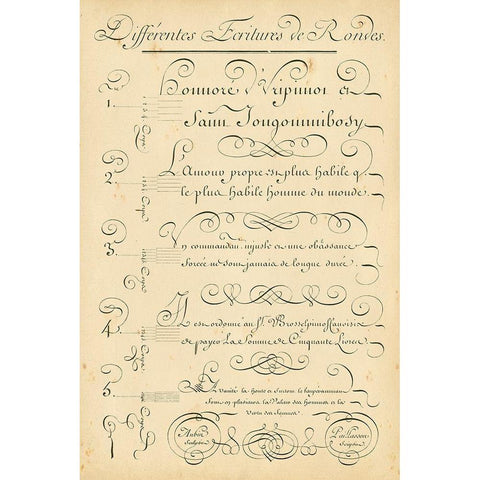 Différentes Ecritures de Rondes.
1.
Honnoré
Saint
2.
L'Amour propre est plus habile q
le plus habile homme du monde.
3.
Un commandem. injuste et une obéissance
forcée ne sont jamais de longue durée.
4.
Il est ordonné au Sr.
de payer La Somme de Cinquante Livres
5.
La Vanité la honte et surtout le tempérammen
Sont en plusieurs la Valeur des hommes et la
Vertu des femmes
Aubin Paillasson
Sculpsit Scripsit